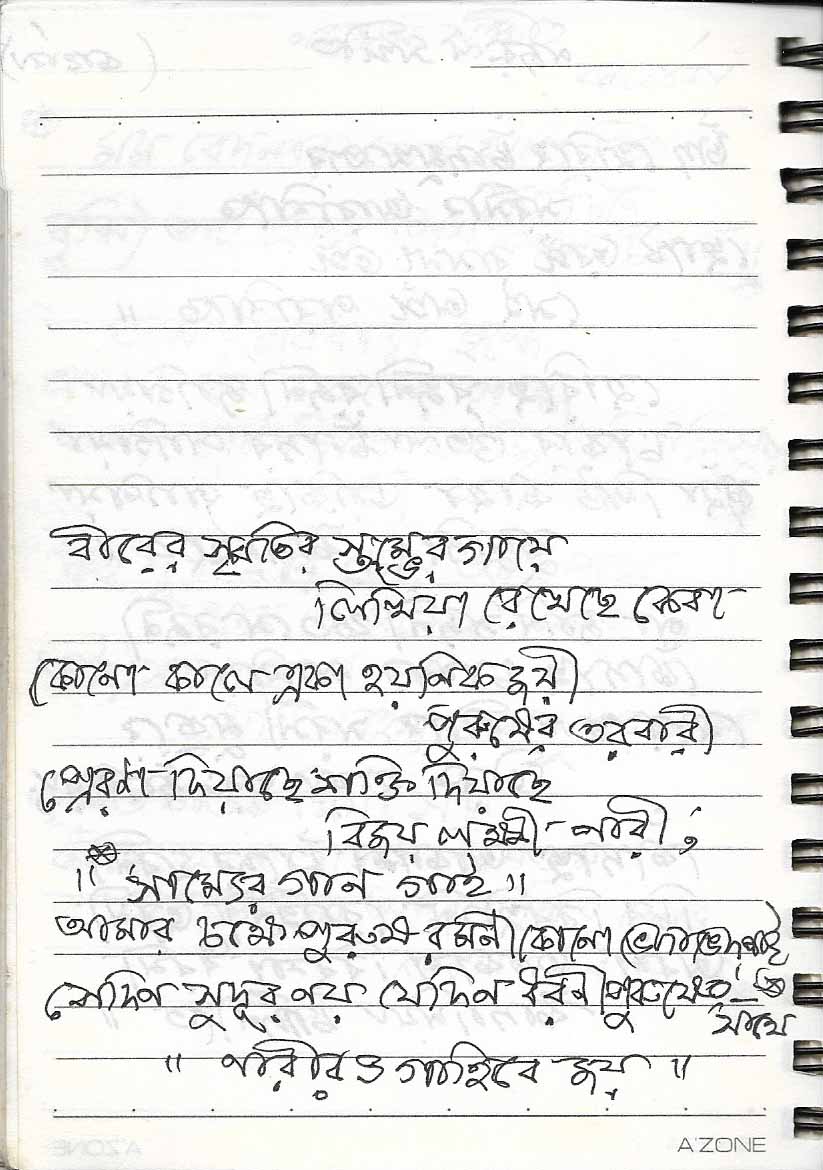 বীরের স্মৃতির স্তম্ভের গায়ে
লিখিয়া রেখেছে কেবা
কোনো কালে একা হয়নিক জয়ী
পুরুষের তরবারী
প্রেরণা দিয়াছে শক্তি দিয়াছে
বিজয় লক্ষ্মী নারী ;
" সাম্যের গান গাই "
আমার চক্ষে পুরুষ রমনী কোনো ভেদাভেদ নাই
সেদিন সুদূর নয় যেদিন ধরনী পুরুষের
সাথে
" নারীরও গাহিবে জয় "
A'ZONE